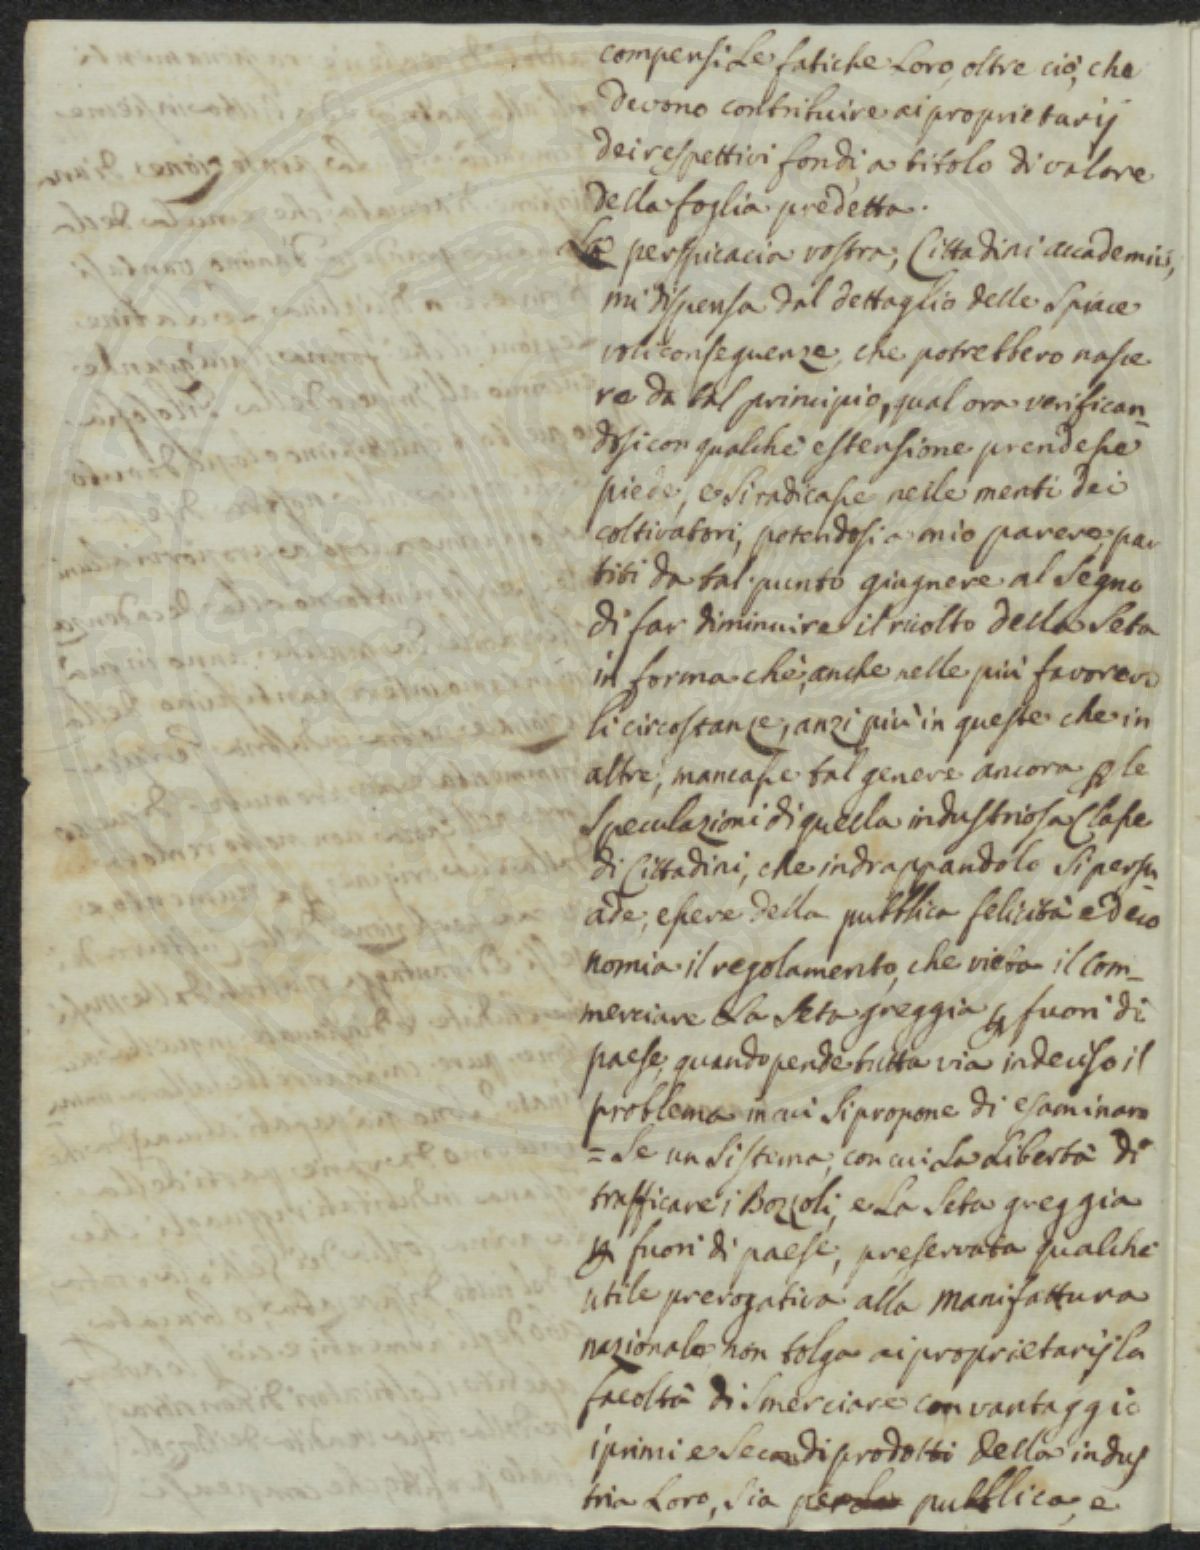 compensi Le fatiche Loro, oltre ciò, che
devono contribuire ai proprietarij
dei respettivi fondi, a titolo di valore
della foglia predetta.
La perspicacia vostra, Cittadini accademici,
mi dispensa dal dettaglio delle spiace
voli conseguenze, che potrebbero nasce
re da tal principio, qual ora verifican_
dosi con qualche estensione prendesse
piede, e si radicasse nelle menti dei
coltivatori, potendosi a mio parere, par
titi da tal punto giugnere al segno
di far diminuire il ricolto della Seta
in forma che, anche nelle più favorevo
li circostanze, anzi più in queste che in
altre, mancasse tal genere ancora p le
Speculazioni di quella industriosa Classe
di Cittadini, che indrappandolo si persu_
ade, essere della pubblica felicità ed eco
nomia il regolamento, che vieta il com_
merciare La Seta greggia p fuori di
paese, quando pende tutta via indeciso il
problema in cui si propone di esaminare
= Se un Sistema, con cui La Libertà di
trafficare i Bozzoli, e La Seta greggia
p fuori di paese, preservata qualche
utile prerogativa alla manifattura
nazionale non tolga ai proprietarij la
facoltà di smerciare con vantaggio
i primi e secondi prodotti della indus
tria Loro, sia pubblica, e